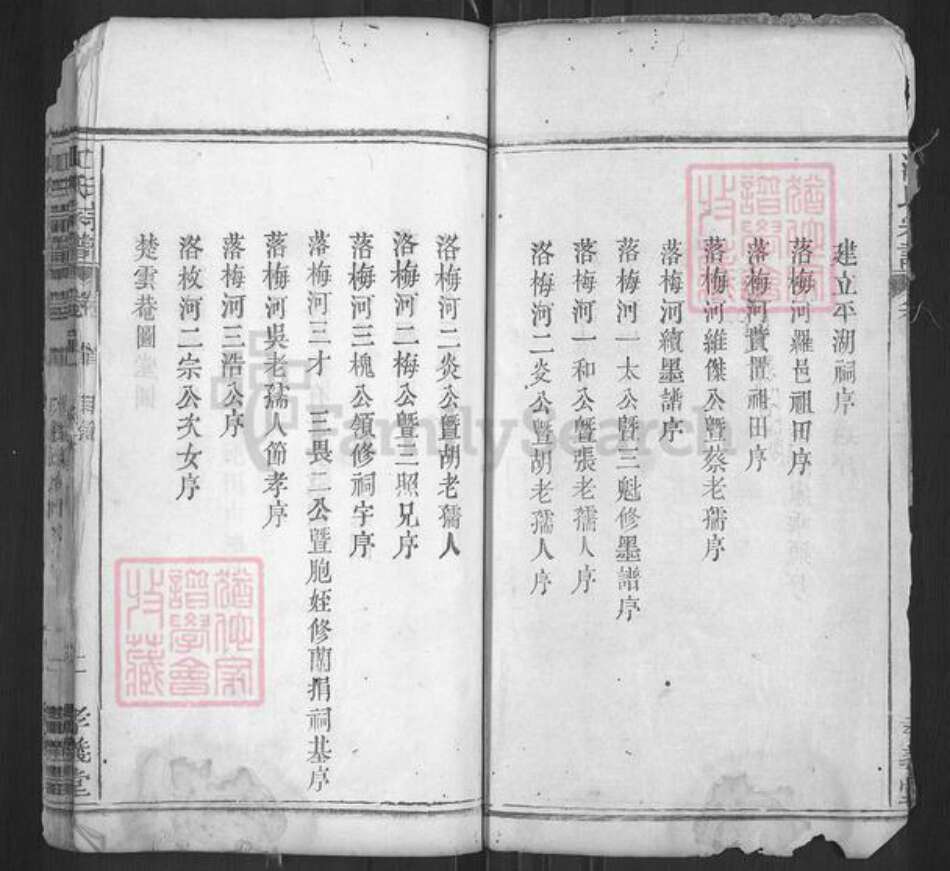 建立平湖祠序
落梅河羅邑祖田序
落梅河貲置祖田序
落梅河維傑公暨蔡老孺序
落梅河續墨譜序
落梅河一太公暨三魁修墨譜序
落梅河一和公暨張老孺人序
落梅河二炎公暨胡老孺人序
孝義堂
落梅河二炎公暨胡老孺人
洛梅河二梅公暨三照兄序
落梅河三槐公領修祠宇序
落梅河三才 三畏三公暨胞姪修蘭捐祠基序
落梅河吳老孺人節孝序
落梅河三浩公序
洛枚河二宗公次女序
焚雲菴圖
孝義堂
譜學會
收藏
FamilySearch